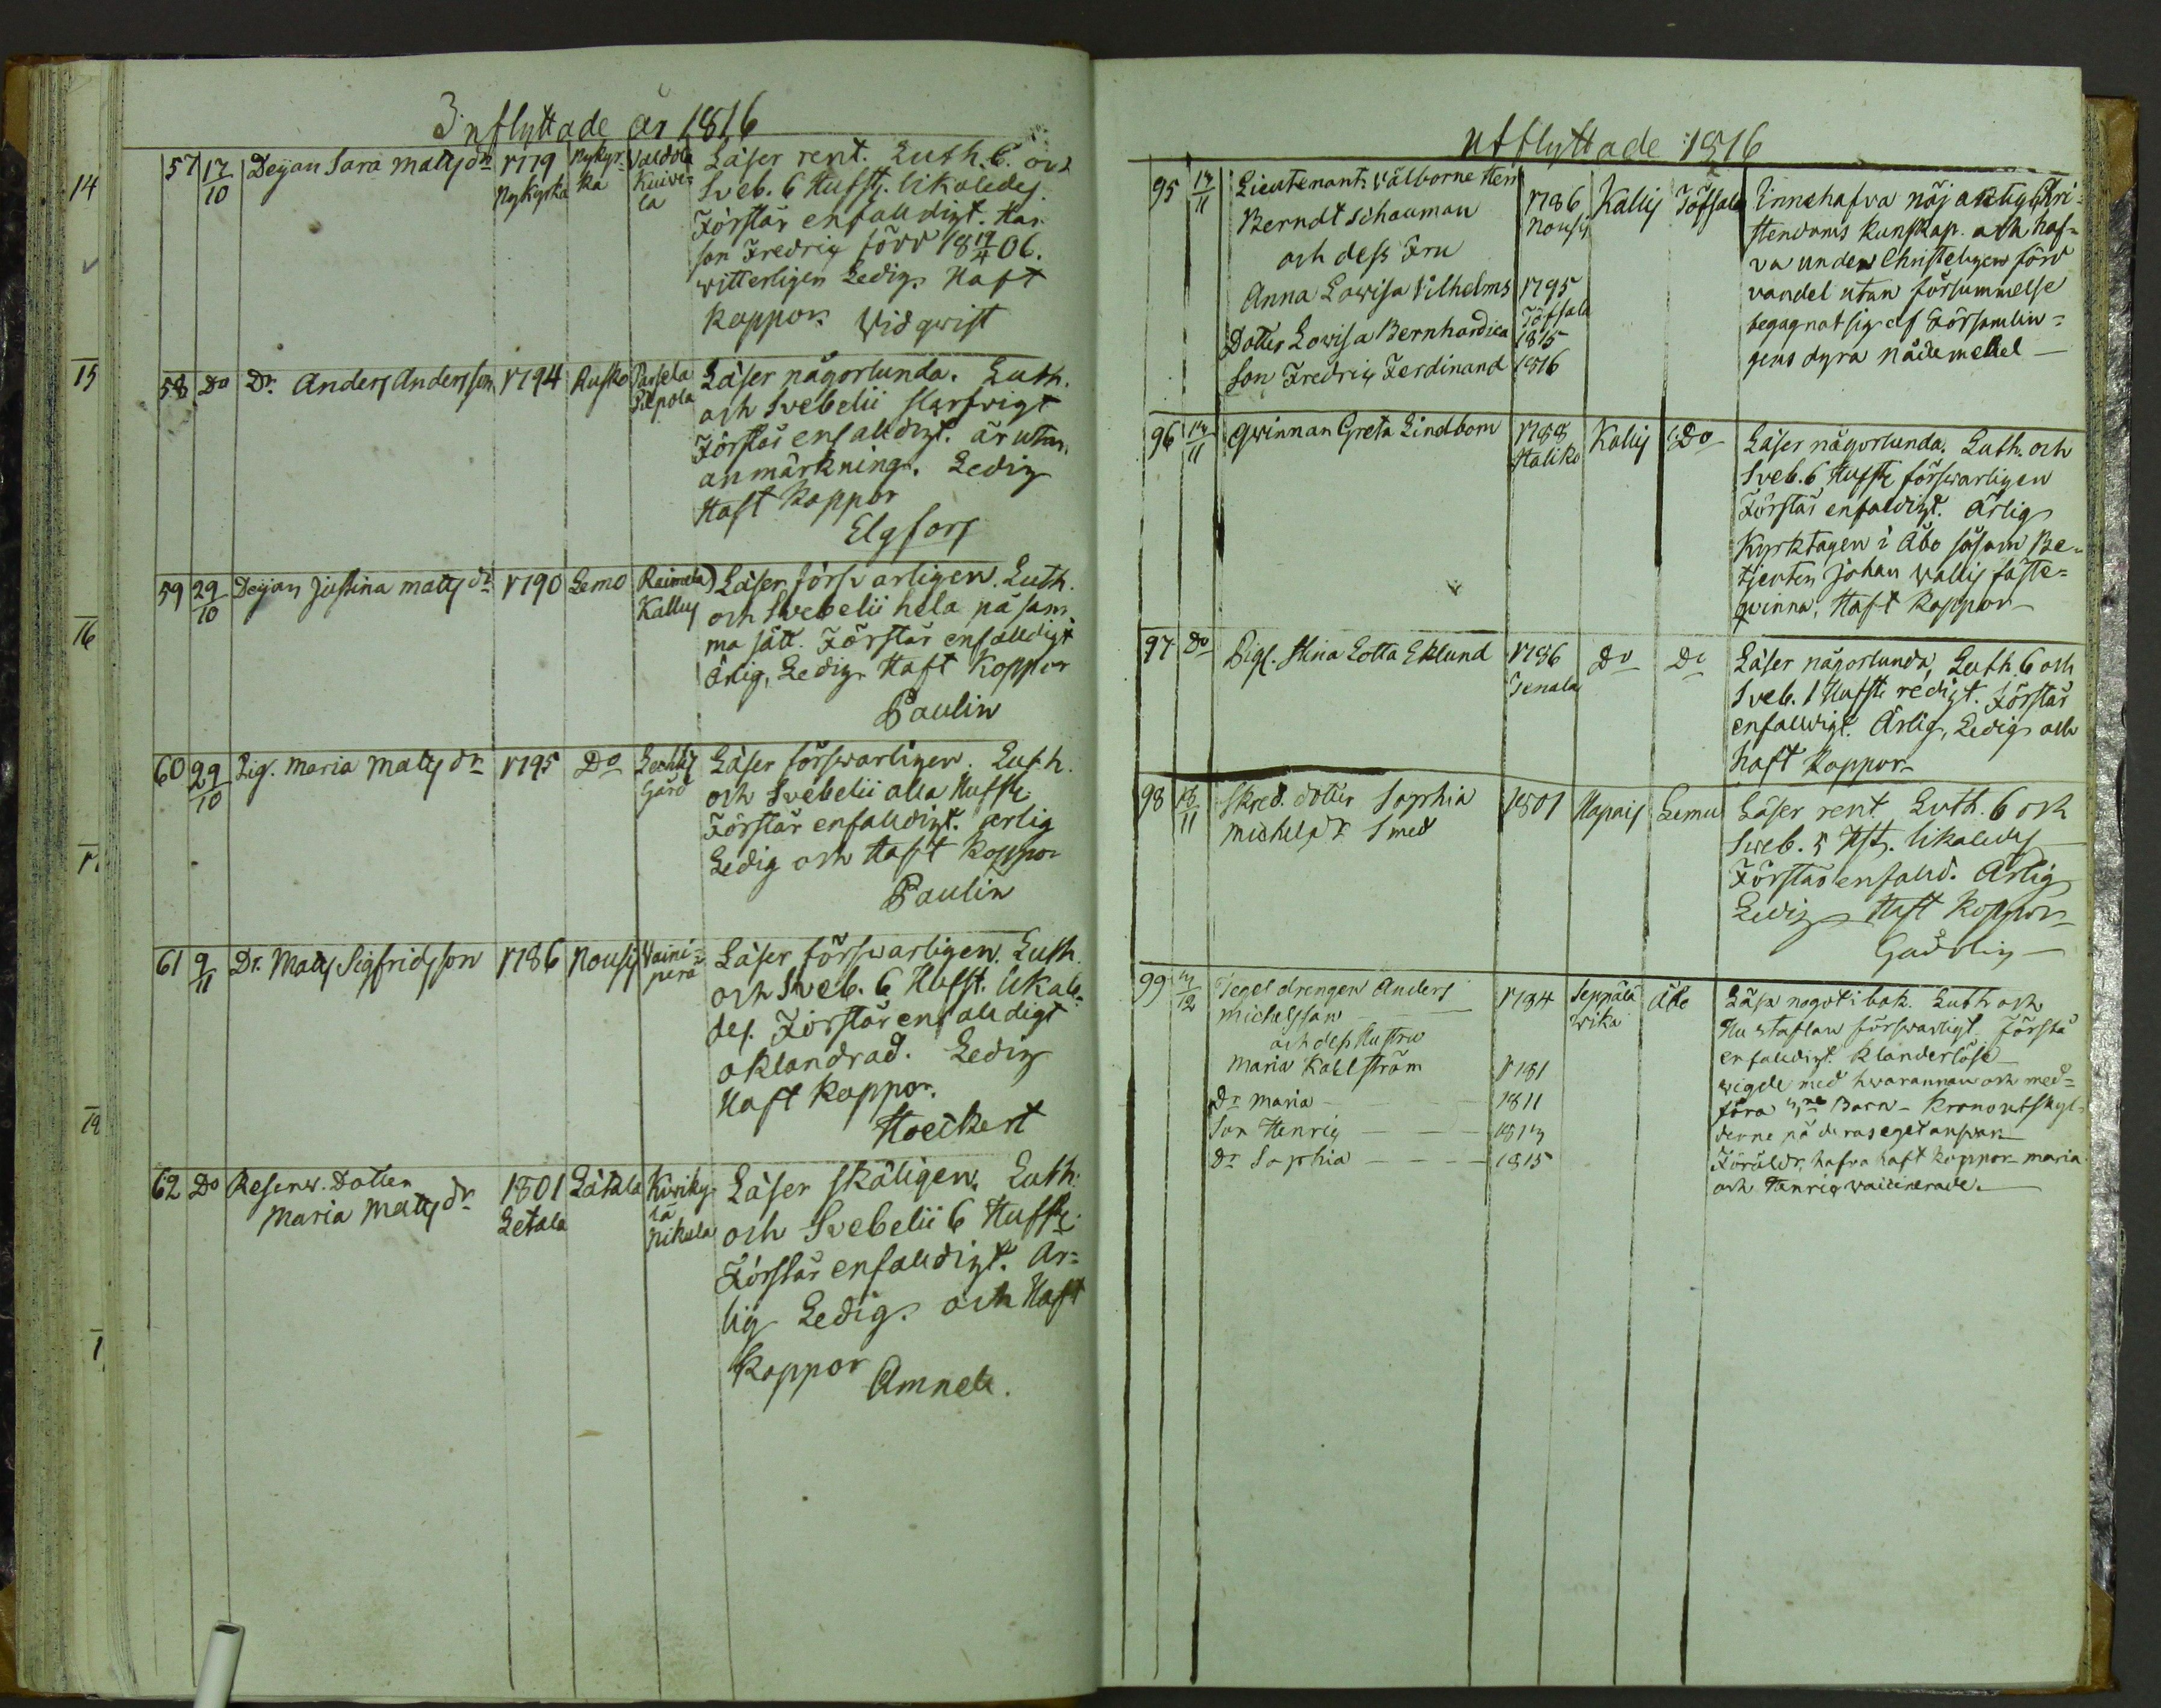 Inflyttade år 1816
57 17/10 Deyan Sara Matts dr 1779 Nykyrka Nykyrka Valdola Kuivela Läser rent. Luth. C. och
Sveb. 6 Hufst. likaledes.
Förstår enfalldigt. Har
son Fredric född 18 19/4 06.
vitterligen Ledig. Haft
koppor. Widqvist
58 Do Dr. Anders Andersson 1794 Rusko Parsela Pilpola Läser någorlunda. Luth.
och Svebelii slarfvigt
Förstår enfalldigt. är utan
anmärkning. Ledig
Haft koppor
Elgfors
59 29/10 Deyan Justina Matts dr 1790 Lemo Raimela Kallis Läser försvarligen. Luth.
och Svebelii hela på sam-
ma sätt. Förstår enfalldigt
Ärlig, Ledig. Haft Koppor
Paulin
60 29/10 Pig. Maria Matts dr 1795 Do Gård Läser försvarligen. Luth.
och Svebelii alla Hufst.
Förstår enfalldigt. ärlig
Ledig och Haft koppor
Paulin
61 9/11 Dr. Matts Sigfridsson 1786 Nousis Vaini-
perä Läser försvarligen. Luth.
och Sveb. 6 Hufst. likale-
des. Förstår enfalldigt
oklandrad. Ledig
Haft koppor.
Hoeckert
62 Do Reserv. Dotter
Maria Matts dr 1801 Letala Låtala Kiviky-
lä
Nikula Läser skäligen. Luth.
och Svebelii 6 Hufst.
Förstår enfalldigt. Är-
lig Ledig. och Haft
koppor
Amnell.
14
15
16
1
Utflyttade 1816
95 17/11 Lieutenant Välborne Herr
Berndt Schauman
och dess Fru
Anna Lowisa Vilhelms
Dotter Lowisa Bernhardica
Son Fredric Ferdinand
1786
Nousis
1795
Töfsala
1815
1816
Kallis Töfsala
Innehafva nöjaktig Chri-
stendoms kunskap. och haf-
va under Christeligen förd
vandel utan försummelse
begagnat sig af Församlin-
gens dyra nådemedel
96 17/11 Qwinnan Greta Lindbom 1788
Haliko Kallis Do Läser någorlunda. Luth. och
Sveb. 6 Hufst försvarligen
Förstår enfaldigt. Ärlig
Kyrktagen i Åbo såsom Be-
tjenten Johan Wallis fäste-
qvinna, Haft koppor
97 Do Pig. Stina Lotta Eklund 1786
Tenala Do Do Läser någorlunda, Luth. 6 och
Sveb. 1 Hufst. redigt. Förstår
enfalldigt. Ärlig, Ledig och
Haft koppor
98 13/11 Skred. dotter Sophia
Michels dr Smed 1801 Hapais Lemu Läser rent Luth. 6 och
Sveb. 5 Hst. likaledes
Förstår enfalld. Ärlig
Ledig Haft koppor
Gadolin
99 14/12 Tegel drengen Anders
Michelsson
och dess Hustru
Maria Kahlström
Dr Maria
Son Henric
Dr Sophia
1784
1781
1811
1813
1815
Seppälä
Åbo
Läsa något i bok. Luth och
Hustaflan försvarligt. Förstå
enfalldigt. klanderlöse
wigde med hwarannan och med-
föra Barn - Kronoutskyl-
derne på deras eget answar
Föräldr. hafva haft koppor Maria
och Henric vaccinerade.